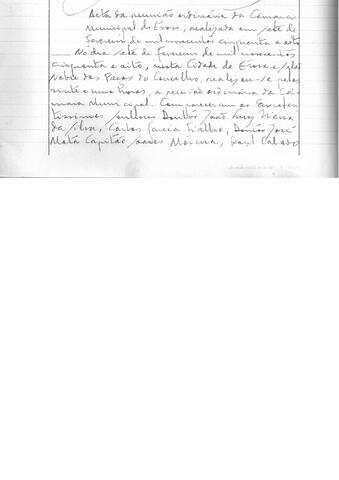 Acta da reunião ordinária da Câmara
Municipal de Évora, realizada em sete de
Fevereiro de mil novecentos cinquenta e oito
No dia sete de Fevereiro de mil novecentos
cinquenta e oito, nesta Cidade de Évora e
Nobre dos Paços do Concelho, realizou-se pelas
vinte e uma horas, a reunião ordinária da Câ-
mara Municipal. Compareceram os Excelen-
tíssimos senhores Doutor João Luiz Vieira
da Silva, Carlos Garcia Fialho, Doutor José
Mata Capitão Soares Moreira, Raul Calado